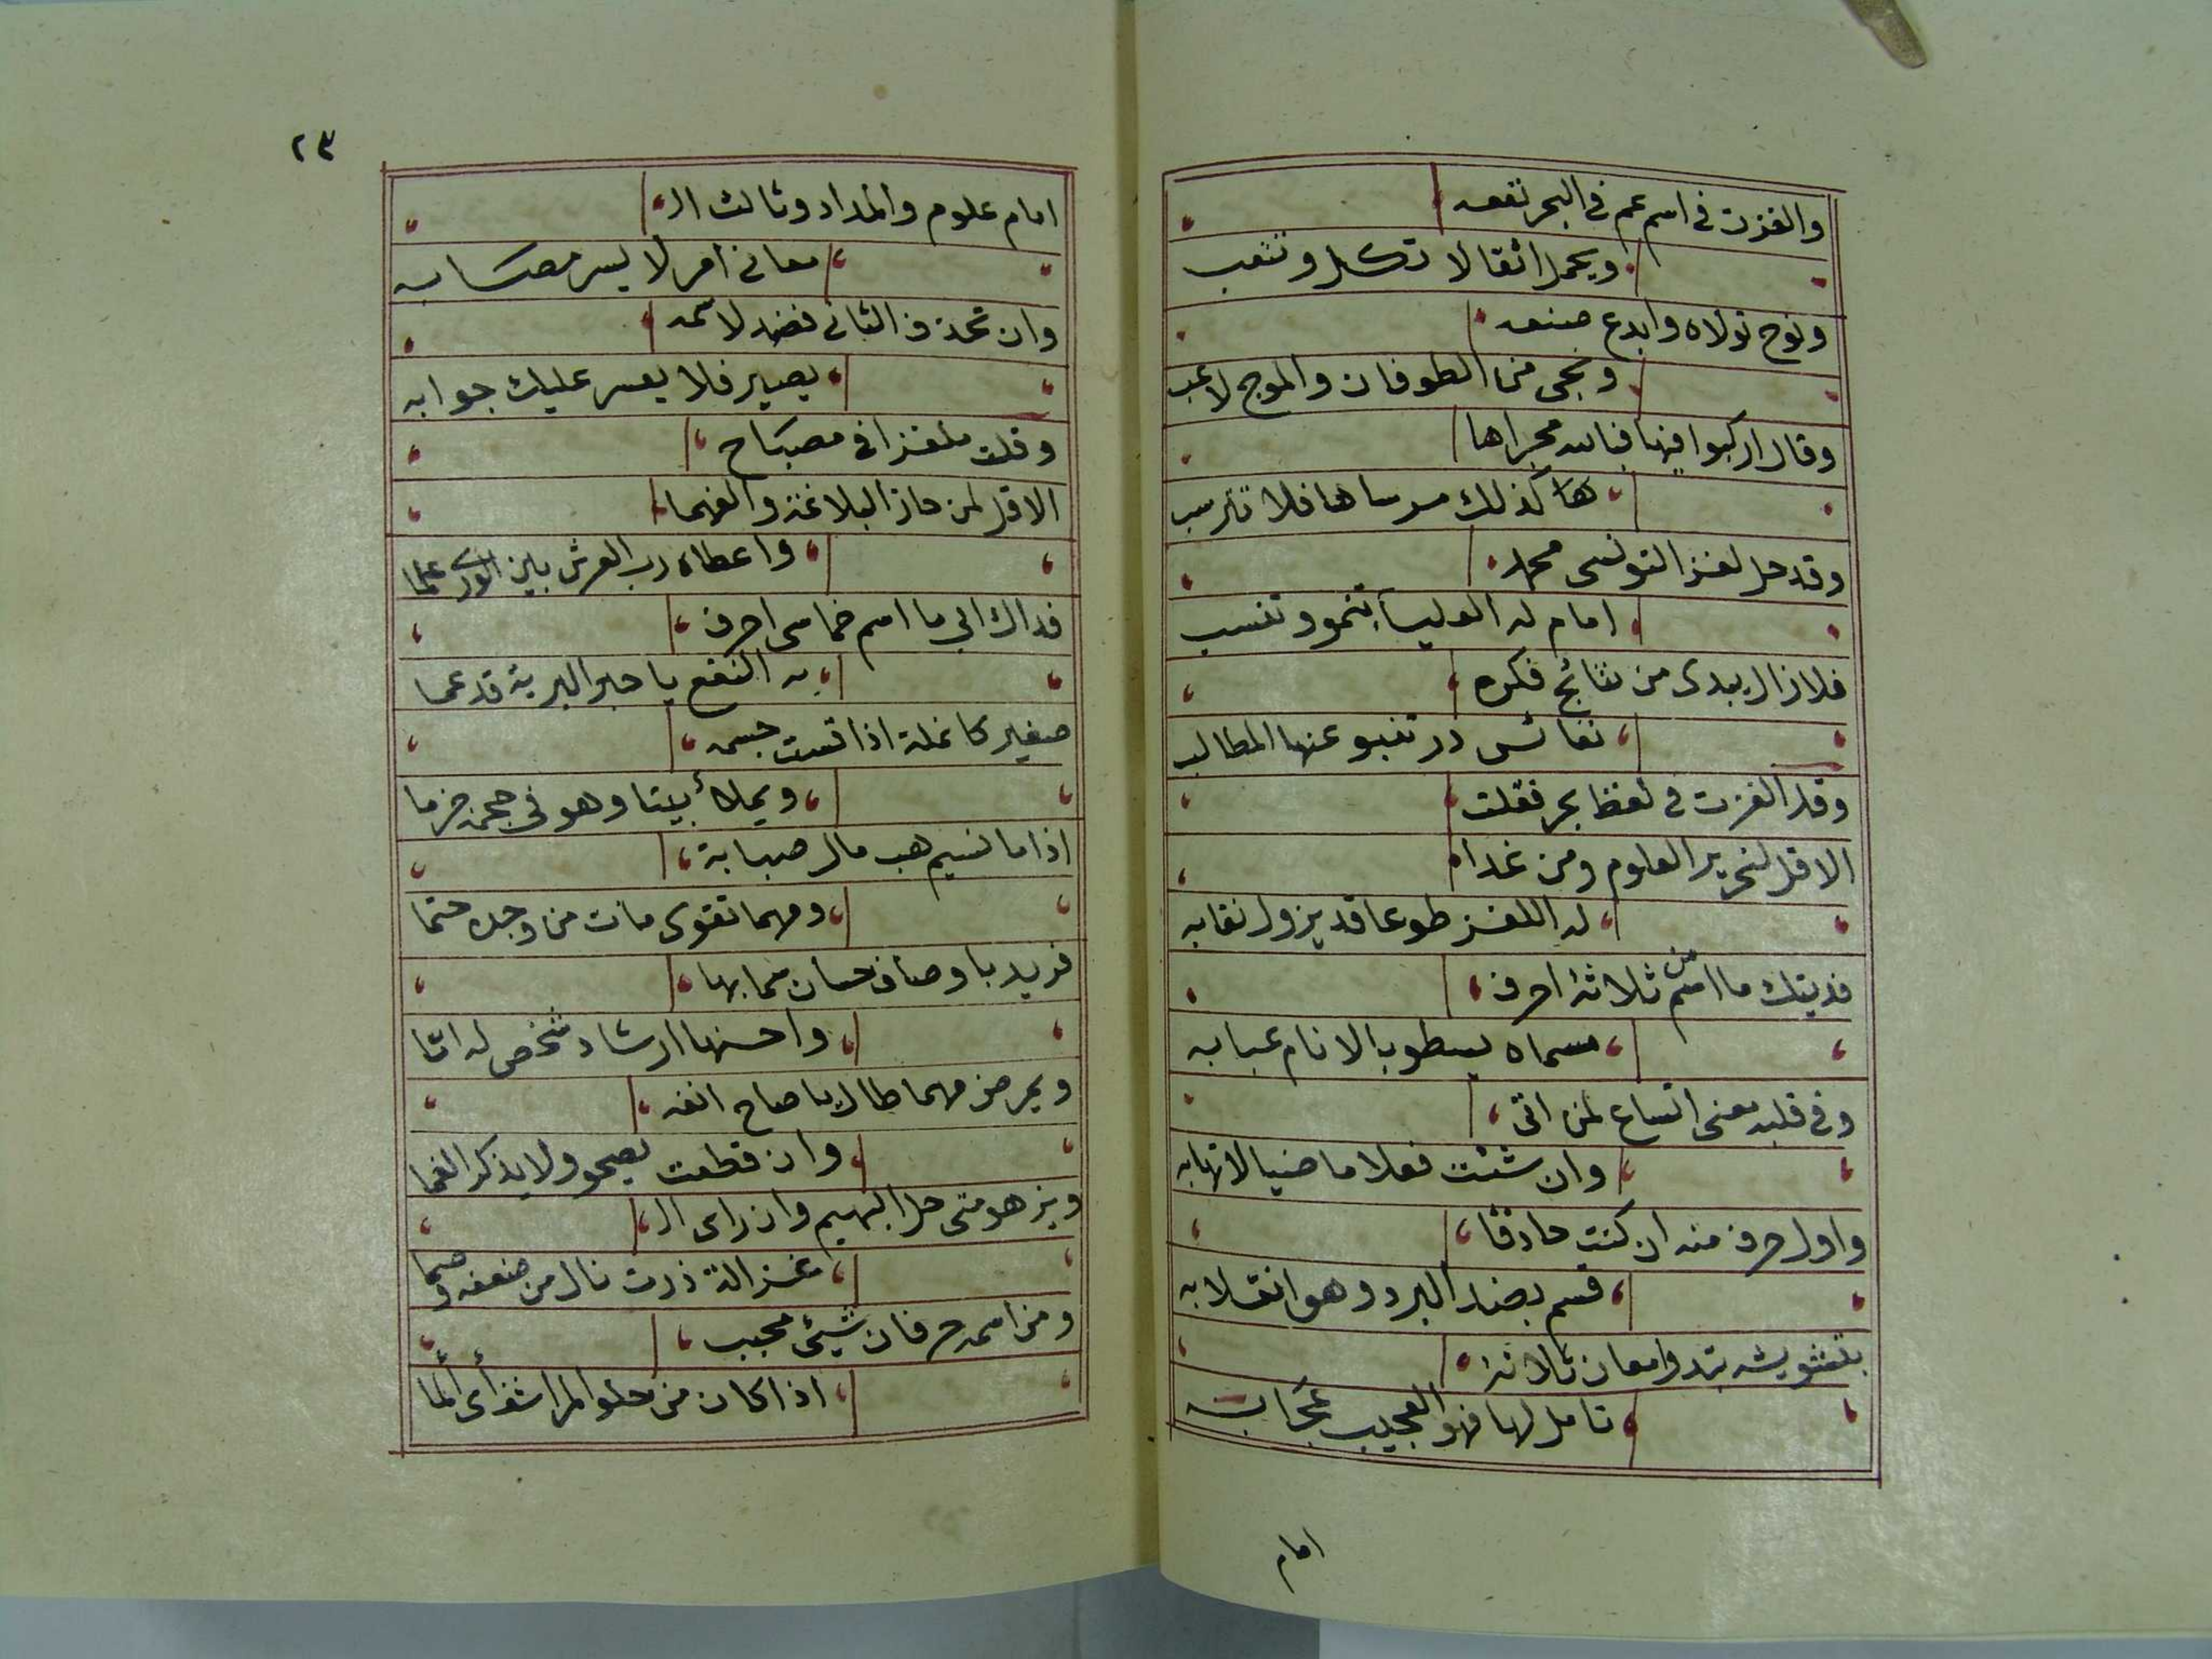 والغزت في اسم عم في البحر نفعه
ويحمل اثقالا تكل وتتعب
ونوح تولاه وابدع صنعه
ونجى من الطوفان والموج لاعب
وقال اركبوا فيها فبالله مجراها
كذلك مرساها فلا تترسب
وقد حل لغز التونسى محمد
امام له العليا تنمو وتنسب
فلا زال يبدى من نتائج فكره
نفائس در تنبو عنها المطالب
وقد الغزت في لفظ بحر فقلت
الا قل لنحرير العلوم ومن غدا
له اللغز طوعا قد يزول نقابه
فديتك ما اسم من ثلاثة احرف
مسماه يسطو بالانام عبابه
وفي قلبه معنى اتساع لمن اتى
وان شئت فعلا ماضيا لا تهابه
واول حرف منه ان كنت حاذقا
قسم بضد البرد وهو انقلابه
بتشويشه تبدوا معان ثلاثة
تامل لها فهو العجيب عجابه
امام
٢٣
امام علوم والمداد وثالث ال
معانى امر لا يسر مصابه
وان تحذف الثانى فضد لاسمه
يصير فلا يعسر عليك جوابه
وقلت ملغزا في مصباح
الا قل لمن حاز البلاغة والفهما
واعطاه رب العرش بين الورى علما
فداك ابي ما اسم خماسى احرف
به النفع يا حبر البرية قد عما
صغير كانملة اذا قست جسمه
ويملأ بيتا وهو في حجمه جرما
اذا ما نسيم هب مال صبابة
ومهما تقوى مات من وجده حتما
فريد باوصاف حسان سما بها
واحسنها ارشاد شخص له امّا
ويمرض مهما طال يا صاح انفه
وان قطعت يصحو ولا يذكر الغما
ويزهو متى حل البهيم وان راى ال
غزالة ذرت نال من ضعفه وصما
ومن اسمه حرفان شيئ محبب
اذا كان من حلو المراشف أى ألما